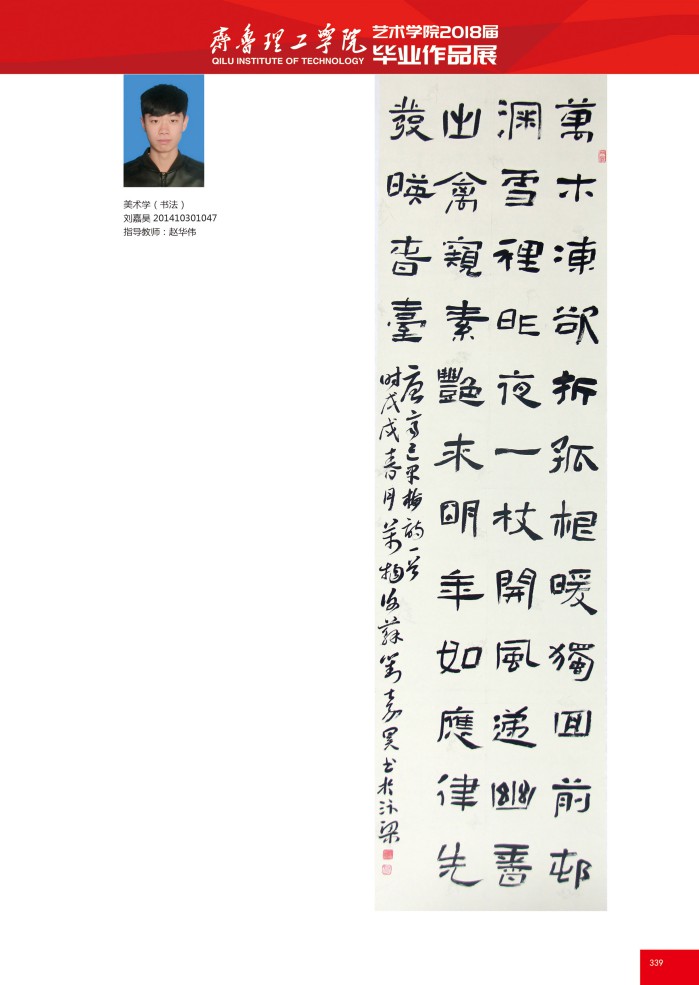 齊魯理工學院
QILU INSTITUTE OF TECHNOLOGY
艺术学院2018届
毕业作品展
美术学（书法）
刘嘉昊 201410301047
指导教师：赵华伟
萬木凍欲折孤根暖獨回前邨
深雪裡昨夜一枝開風递幽香
出禽窺素艷來明年如應律先
發暎春臺
唐齊己早梅詩一首
时戊戌春月萬物復蘇劉嘉昊书於汴梁
339